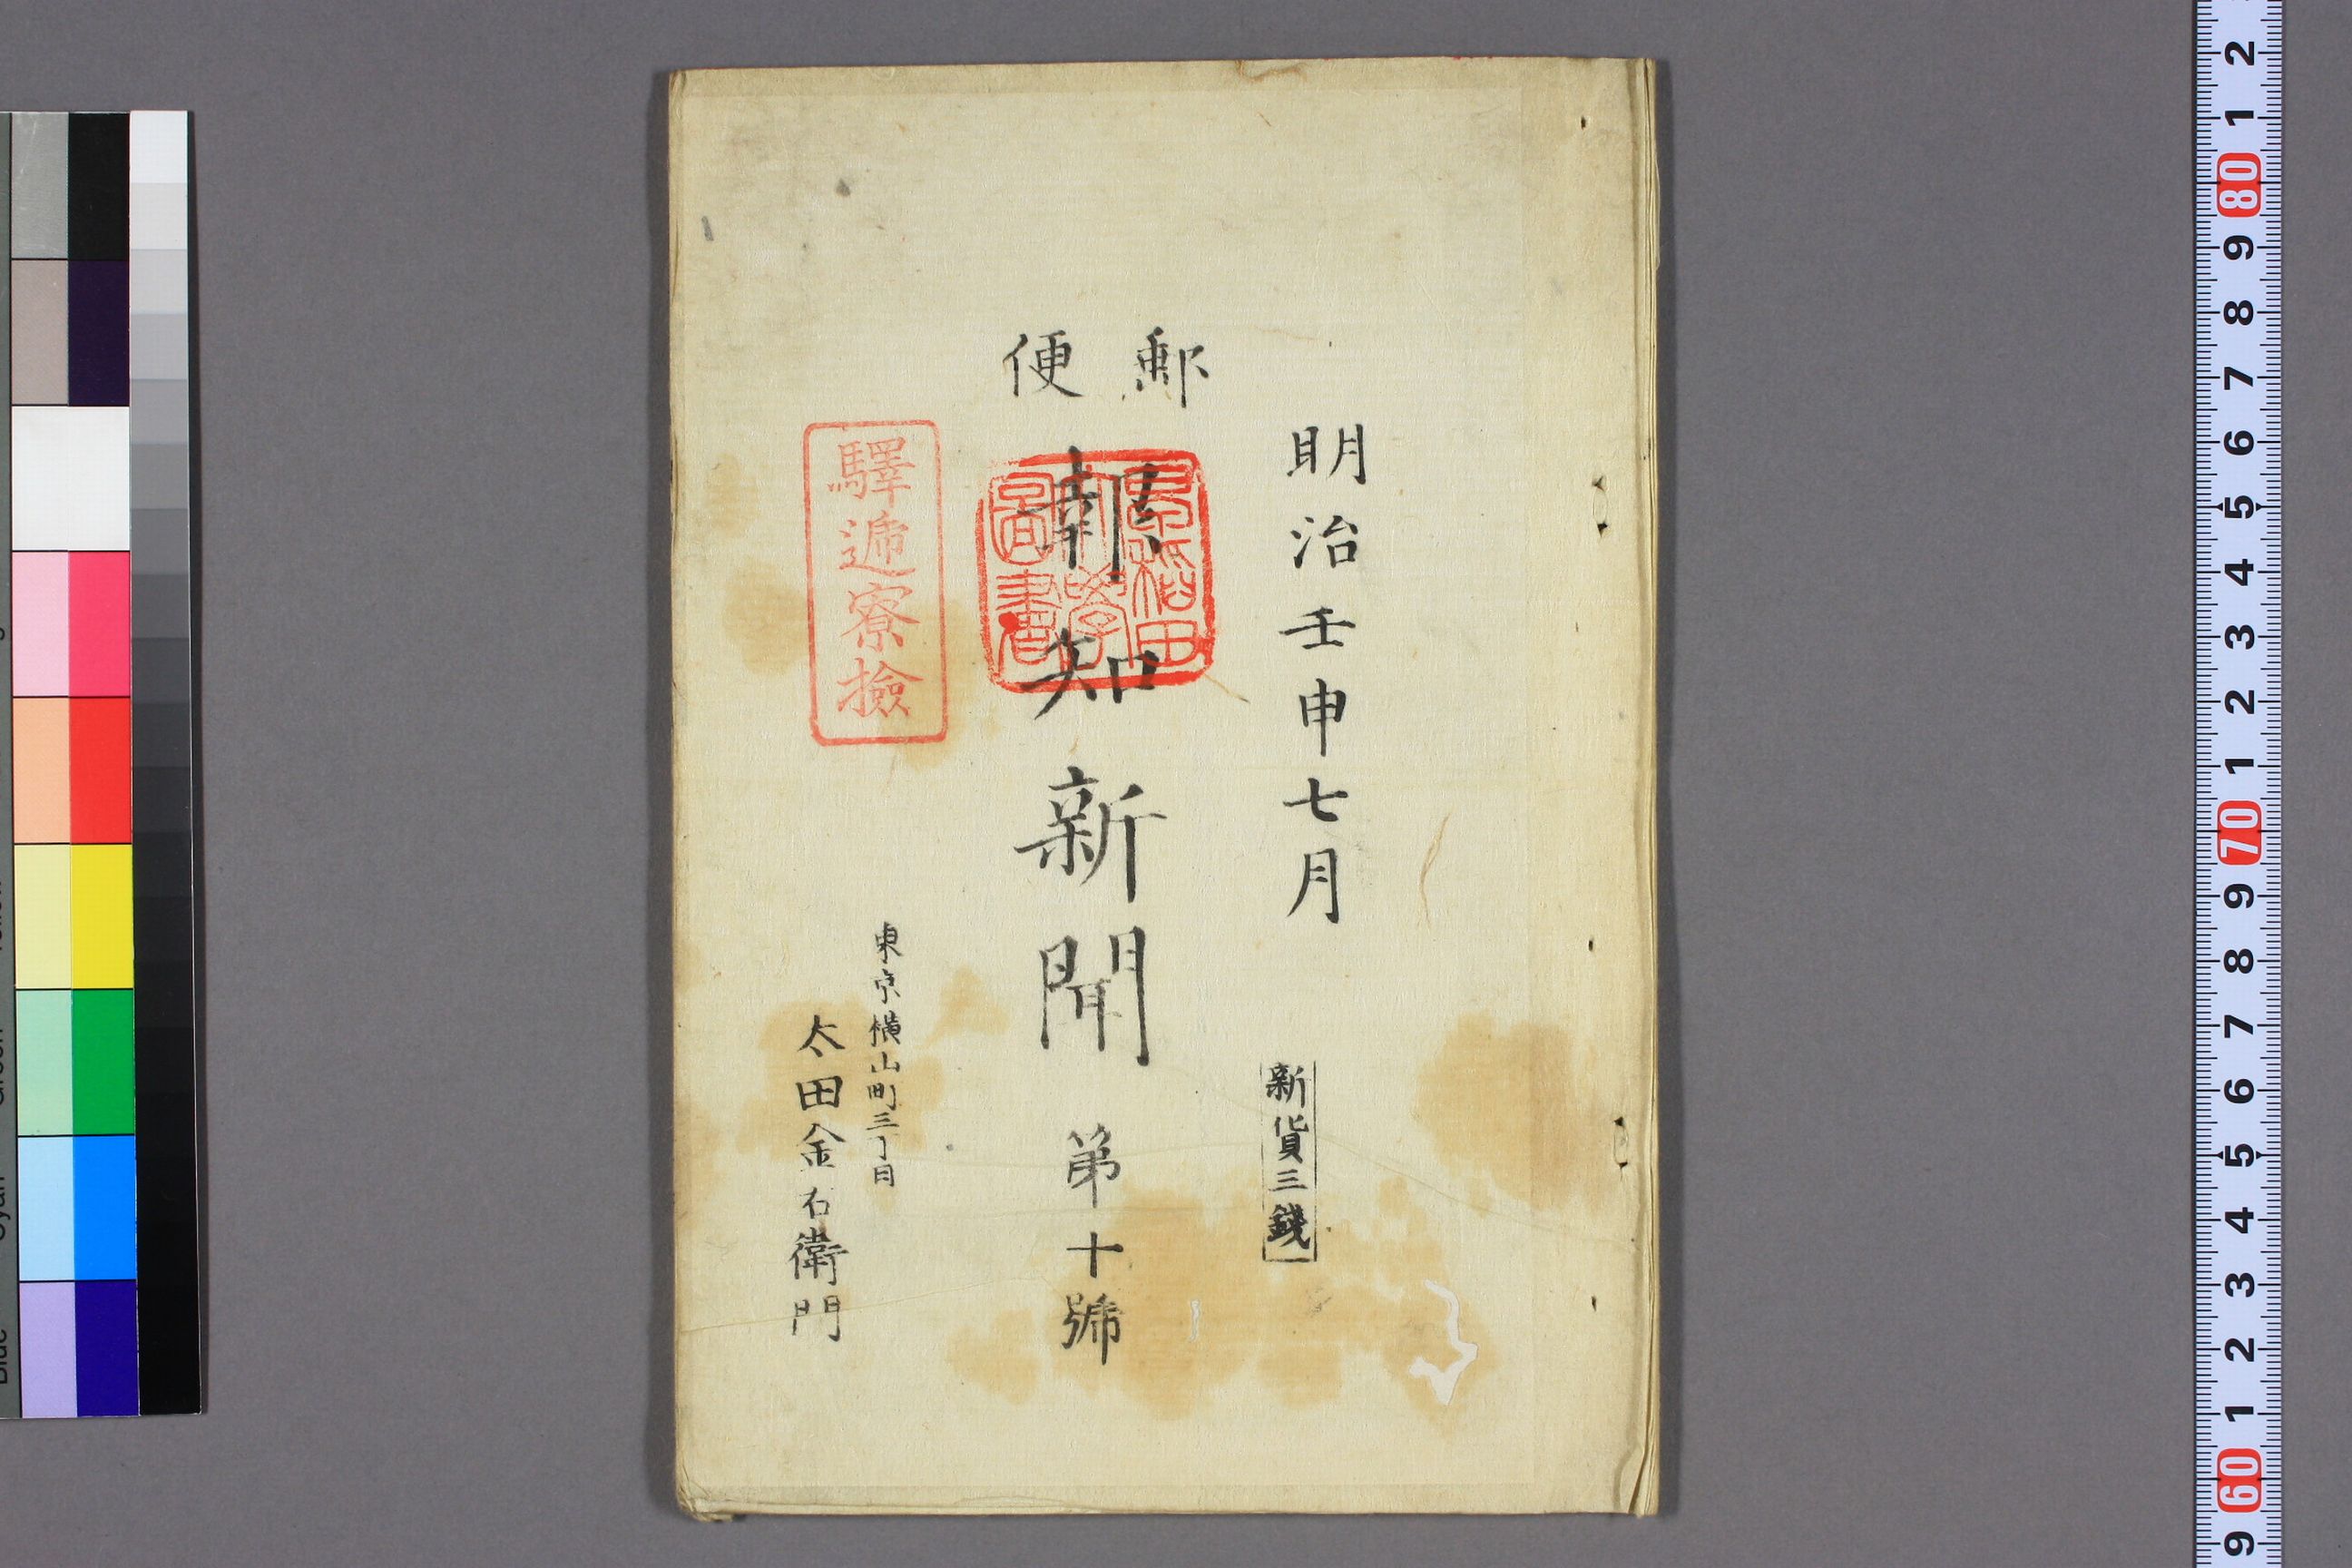 明治壬申七月
新貨三錢
郵便
報知新聞 第十號
早稲田大學圖書
驛遞寮檢
東京横山町三丁目
太田金右衛門
2 1 80 9 8 7 6 5 4 3 2 1 70 9 8 7 6 5 4 3 2 1 60 9